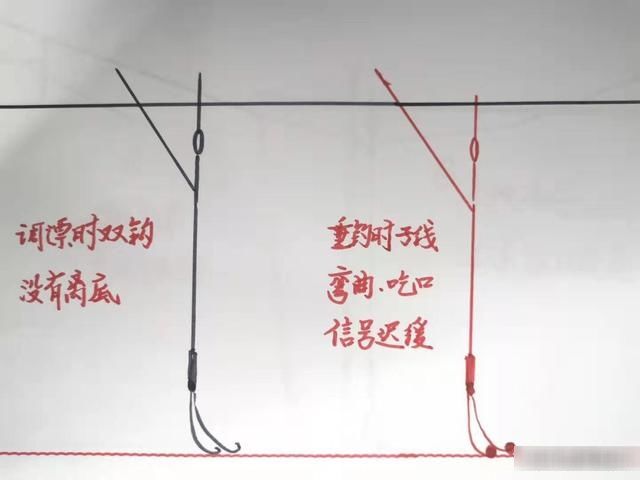 调漂时双钩
没有离底
垂钓时子线
弯曲、吃口
信号迟缓